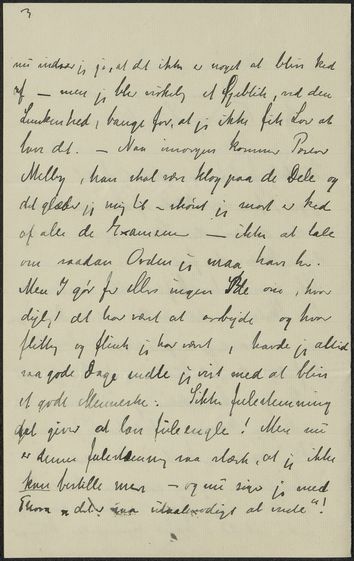 3
nu indser jeg jo, at det ikke er noget at blive ked
af – men jeg blev virkelig et Øjeblik, ved den
Leukenhed, bange for, at jeg ikke fik Lov at
lære det. – Naa imorgen kommer Pastor
Melby, han skal være klog paa de Dele og
det glæder jeg mig til – skønt jeg snart er ked
af alle de Examener – ikke at tale
om saadan Orden jeg maa have her.
Men I gør for ellers ingen om, hvor
dejligt det har været at arbejde og hvor
flittig og flink jeg har været, havde jeg altid
saa gode Dage endte jeg vist med at blive
et godt Menneske. Sikke Julestemning
det giver at lave Juleengle! Men nu
er denne Julestemning saa stærk, at jeg ikke
kan bestille mer – og nu siger jeg med
Thora "det er saa utaalmodigt at vente"!